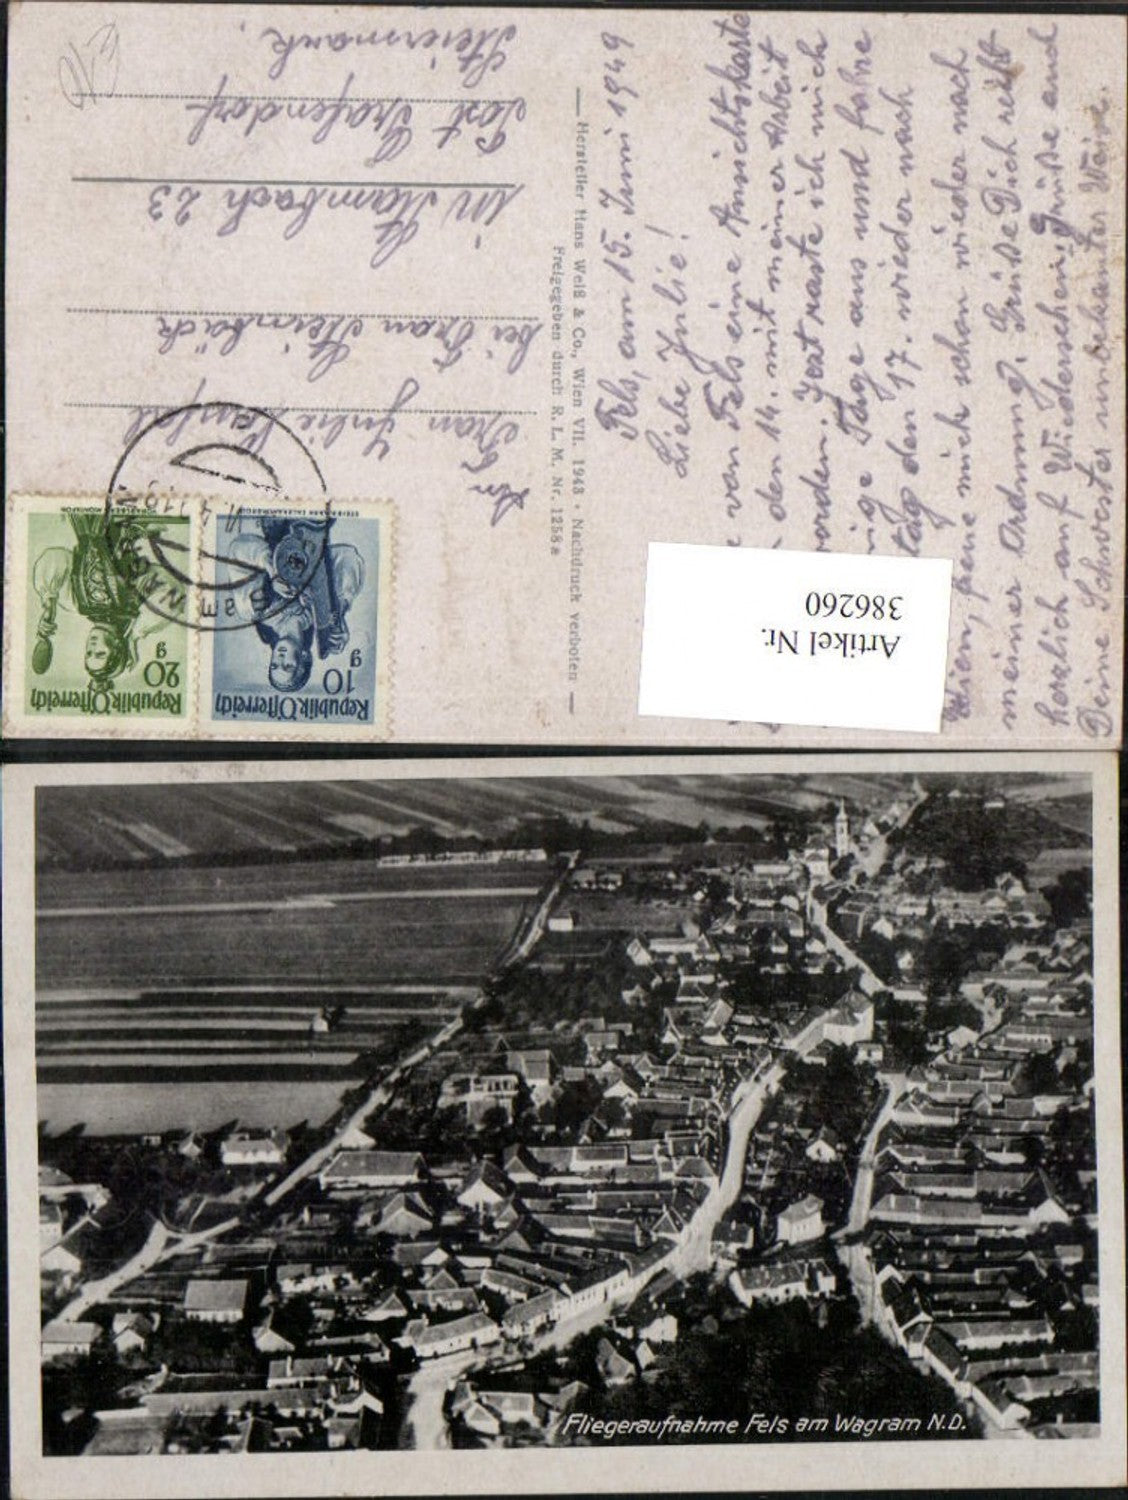 Fels, am 15. Juni 1949
Liebe Julie!
von Fels eine Ansichtskarte
den 14. mit meiner Arbeit
raste ich mich
Tage aus und fahre
den 17. wieder nach
Wien, freue mich schon wieder nach
meiner Ordnung. Grüße Dich recht
herzlich auf Wiedersehen, Grüße und
Deine Schwester unbekannter Weise.
Hersteller Hans Weiß & Co., Wien VII. 1943 • Nachdruck verboten
Freigegeben durch R. L. M. Nr. 1258a
An
Frau Julie
bei Frau
in Stambach 23
Post Grafendorf
Steiermark.
Republik Österreich
10 g
Republik Österreich
20 g
Artikel Nr.
386260
Fliegeraufnahme Fels am Wagram N.D.